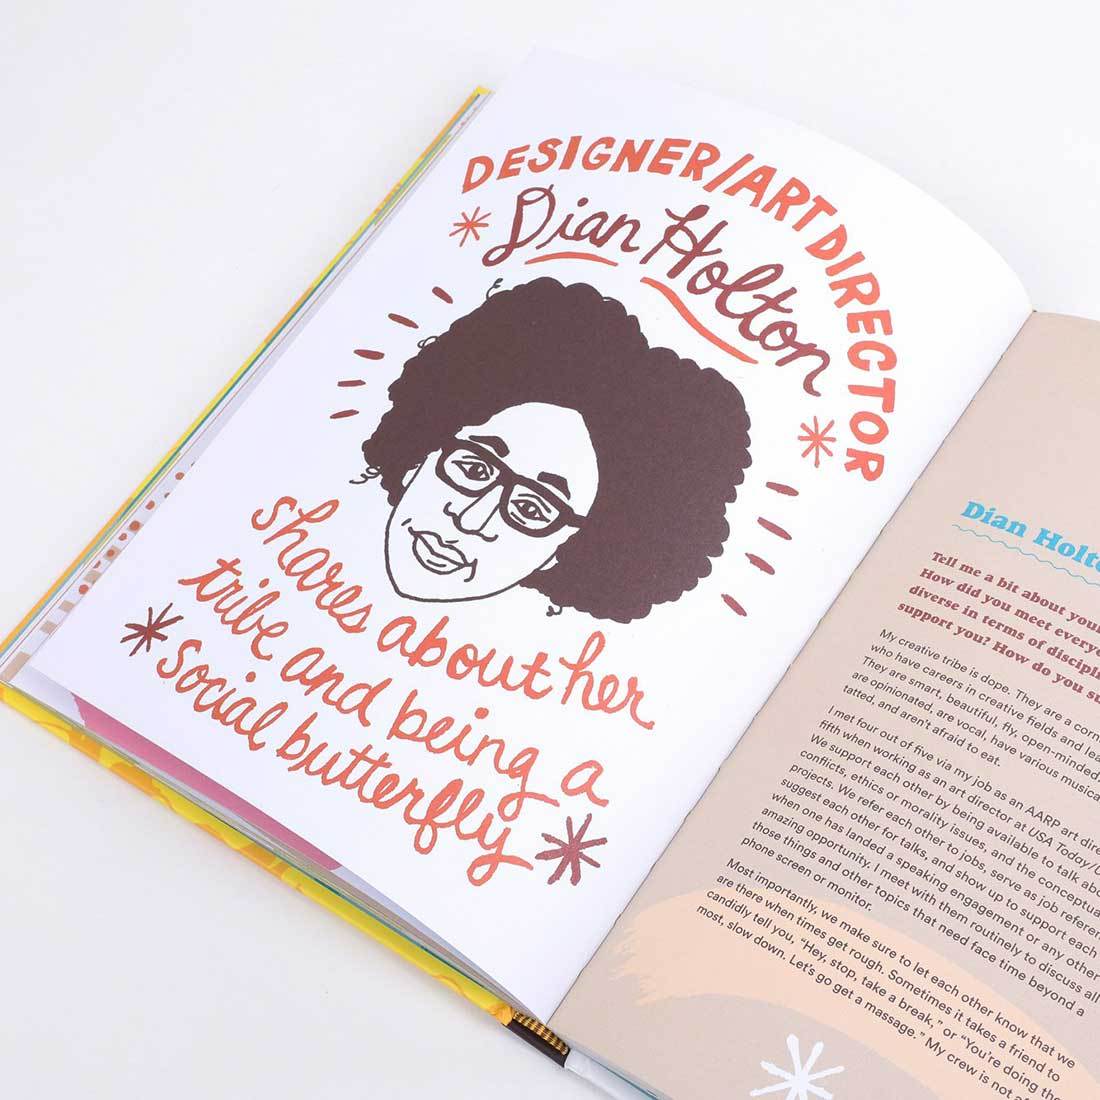 DESIGNER/ART DIRECTOR
Dian Holton
shares about her
tribe and being a
social butterfly
Dian
Tell me a bit about
How did you meet
diverse in terms of
support you? How do you
My creative tribe is dope. They are a
who have careers in creative fields and
They are smart, beautiful, fly, open-minded,
are opinionated, are vocal, have various
tatted, and aren't afraid to eat.
I met four out of five via my job as an AARP art
fifth when working as an art director at USA Today/
We support each other by being available to talk
conflicts, ethics or morality issues, and the
projects. We refer each other to jobs, serve as job
suggest each other for talks, and show up to support each
when one has landed a speaking engagement or any other
amazing opportunity. I meet with them routinely to discuss all
those things and other topics that need face time beyond a
phone screen or monitor.
Most importantly, we make sure to let each other know that we
are there when times get rough. Sometimes it takes a friend to
candidly tell you, “Hey, stop, take a break,” or “You're doing the
most, slow down. Let's go get a massage.” My crew is not